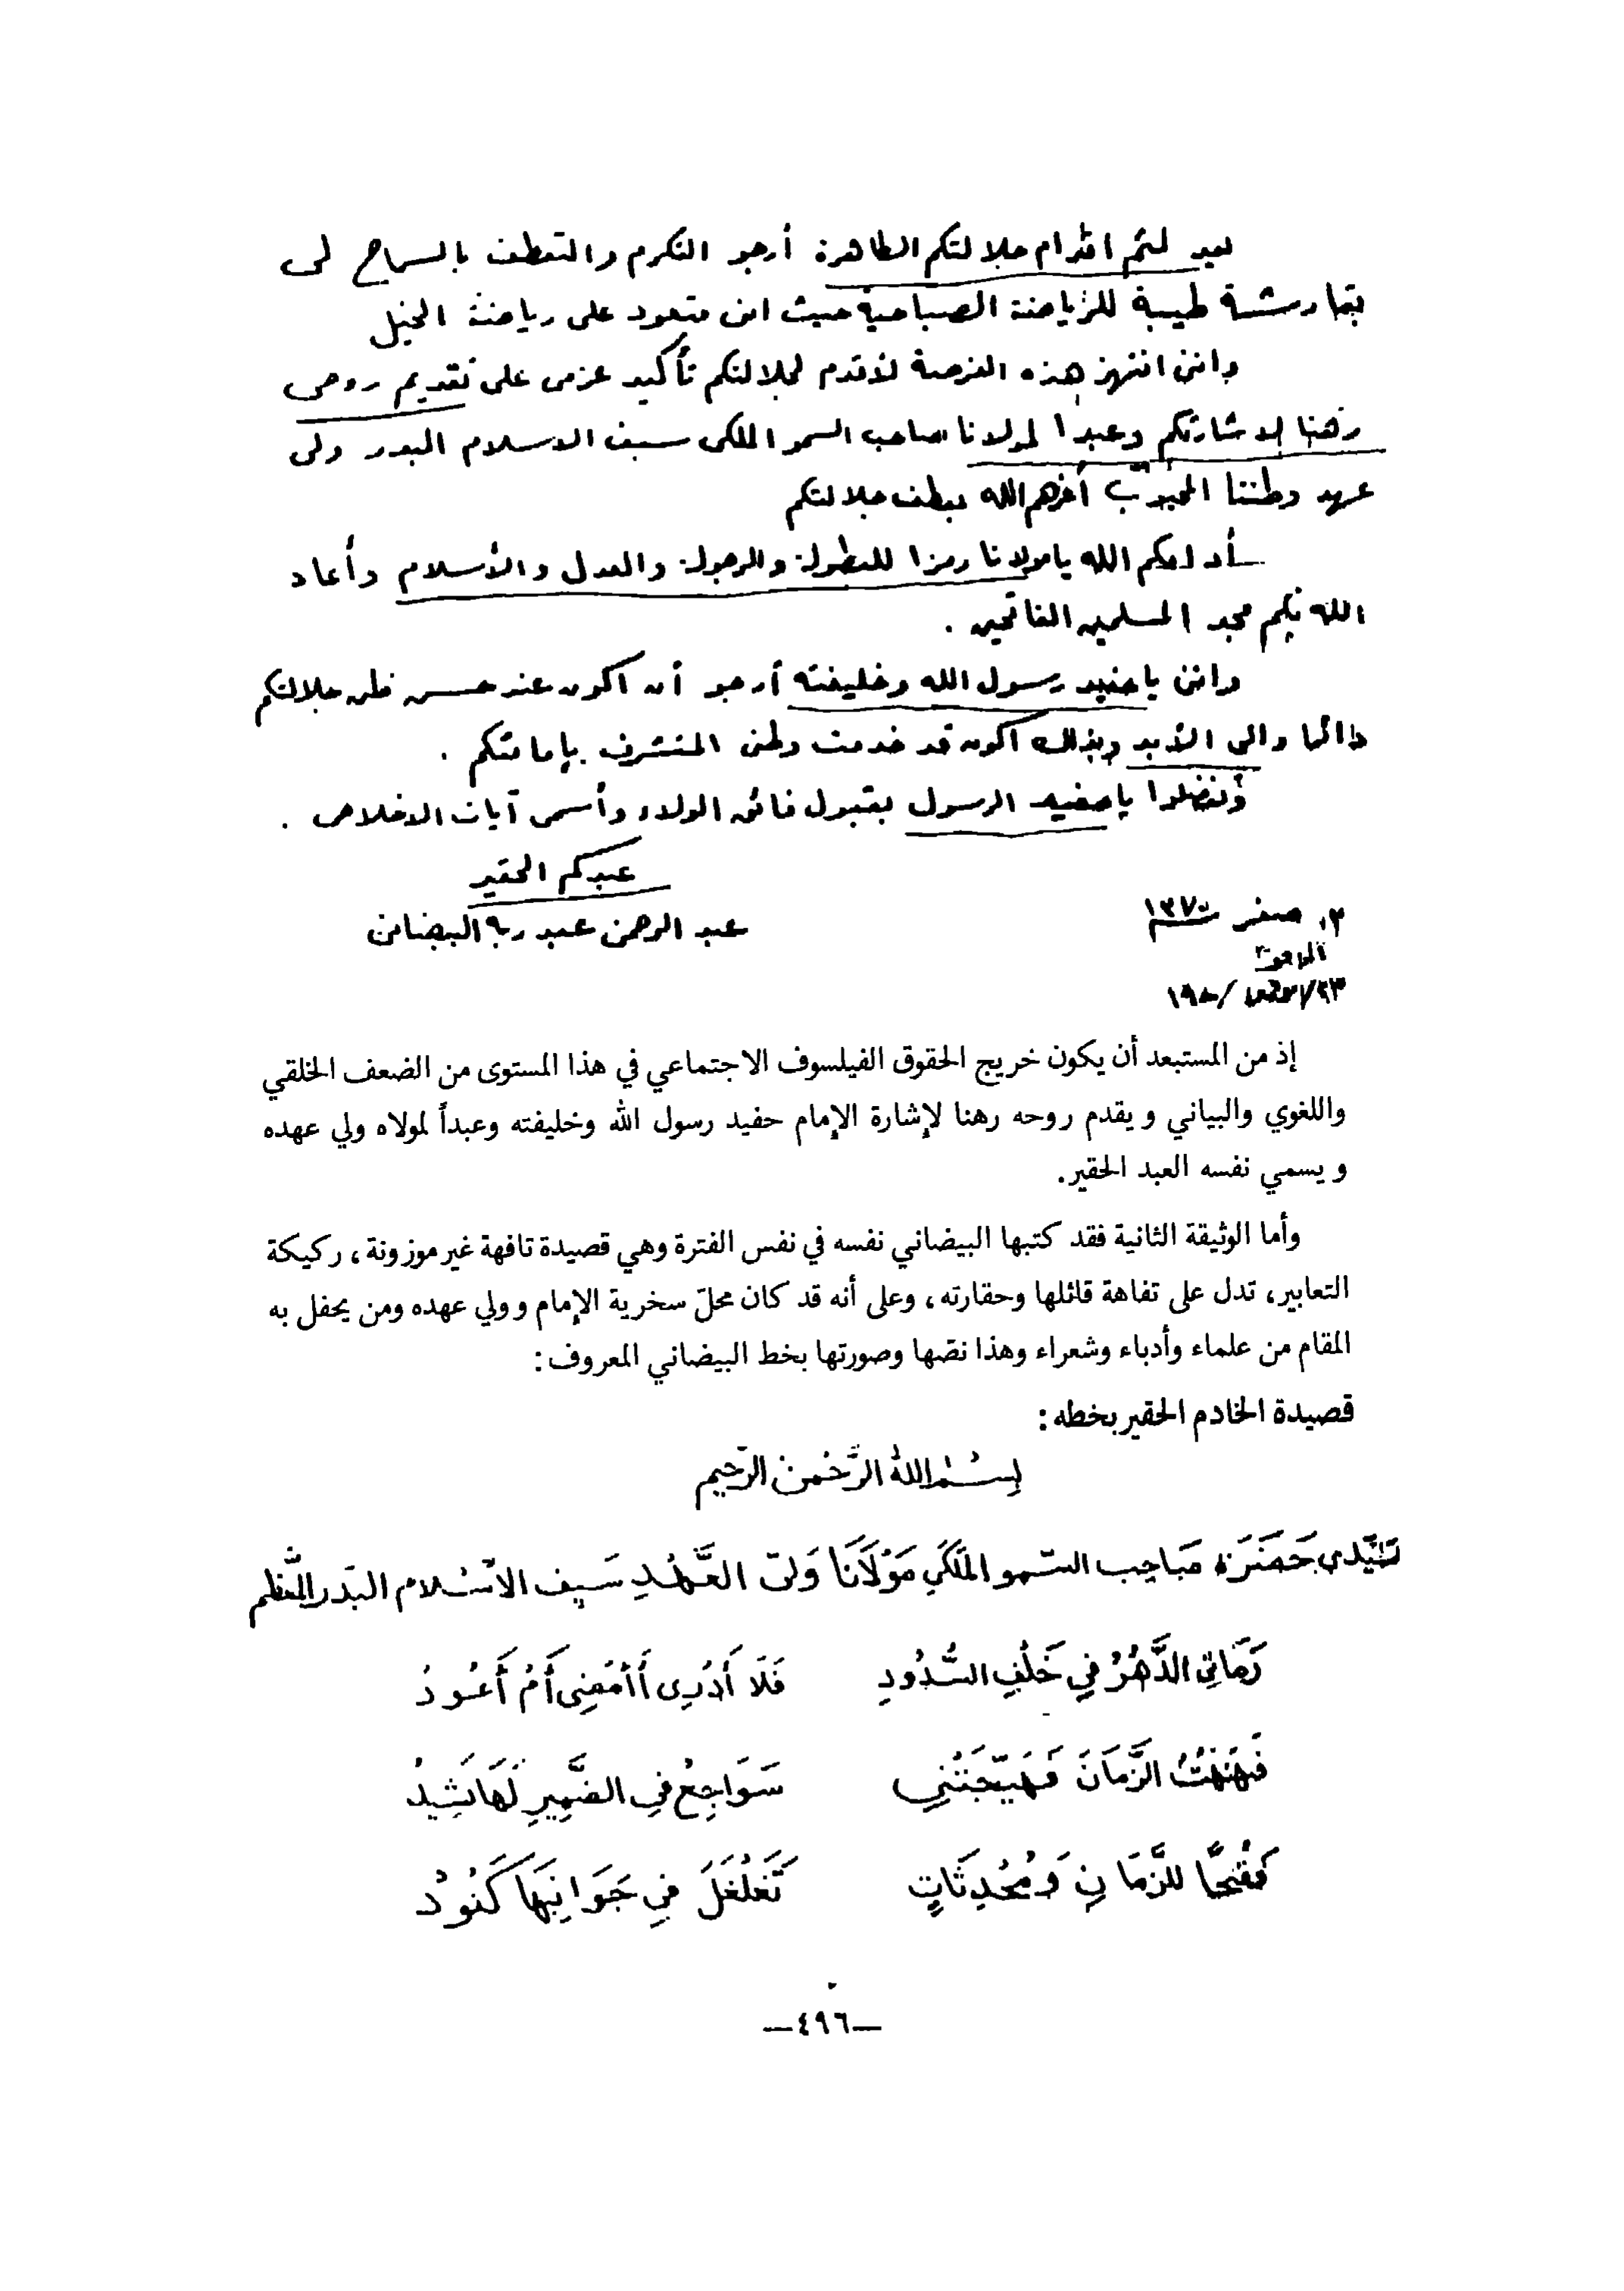 بعد لثم اقدام جلالتكم الطاهرة أرجو التكرم والتعطف بالسماح لى
طيبة للرياضة الصباحية حيث انى متعود على رياضة الخيل
وانى انتهز هذه الفرصة لأقدم لجلالتكم تأكيد عزمى على تقديم روحى
رهنا لاشارتكم وعبدا لمولانا صاحب السمو الملكى سيف الاسلام البدر ولى
عهد وطننا المحبوب أعزهم الله بعطف جلالتكم
أدامكم الله يا مولانا رمزا للبطولة والرجولة والعدل والأسلام وأعاد
الله بكم مجد المسلمين الفاتحين .
وانى يا حفيد رسول الله وخليفته أرجو أن اكون عند حسن ظن جلالتكم
دائما والى الأبد وبذلك اكون قد خدمت وطنى المتشرف بإمامتكم .
وتفضلوا يا حفيد الرسول بقبول فائق الولاء وأسمى آيات الاخلاص .
عبدكم الحقير
عبد الرحمن عبد ربه البيضانى
صفر سنة ١٣٧٠
الموافق
إذ من المستبعد أن يكون خريج الحقوق الفيلسوف الاجتماعي في هذا المستوى من الضعف الخلقي
واللغوي والبياني ويقدم روحه رهنا لإشارة الإمام حفيد رسول الله وخليفته وعبداً لمولاه ولي عهده
ويسمي نفسه العبد الحقير.
وأما الوثيقة الثانية فقد كتبها البيضاني نفسه في نفس الفترة وهي قصيدة تافهة غير موزونة، ركيكة
التعابير، تدل على تفاهة قائلها وحقارته، وعلى أنه قد كان محلّ سخرية الإمام وولي عهده ومن يحفل به
المقام من علماء وأدباء وشعراء وهذا نصّها وصورتها بخط البيضاني المعروف:
قصيدة الخادم الحقير بخطه:
بِسْمِ اللهِ الرَّحْمنِ الرَّحِيمِ
سَيِّدى حَضْرَة صَاحِب السّمو المَلَكي مَوْلَانَا وَلىّ العَهْدِ سَيف الاسْلام البَدر المعظم
رَمَانِى الدَّهْرُ فِي خَلْفِ السُّدُودِ فَلَا أَدْرِى أَأَمْضِى أَمْ أَعُودُ
فَهَنهَهْتُ الزَّمَانَ فَهَيّجَتْنِي سَوَاجِعُ فِي الضَّمِيرِ لَهَا نَشِيدُ
فَقُبْحًا لِلزَّمَانِ وَمُحْدِثَاتٍ تَغَلْغَلَ فِي جَوَانِبَهَا كَنُودُ
—٤٩٦—